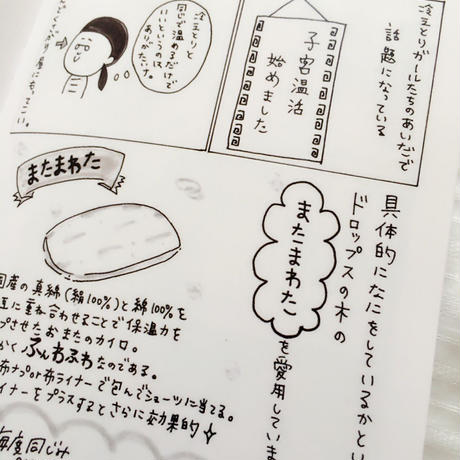 冷えとりガールたちのあいだで
話題になっている
子宮温活
始めました
冷えとりと
同じで温めるだけで
いいというのは、
ありがたいす。
屋にもってこい。
具体的になにをしているかとい
ドロップスの木の
またまわた
を愛用していま
またまわた
国産の真綿(絹100%)と綿100%を
互に重ね合わせることで保温力を
プさせたおまたのカイロ。
かくふんわふわなのである。
布ナプor布ライナーで包んでショーツに当てる。
イナーをプラスするとさらに効果的
毎度同じみ